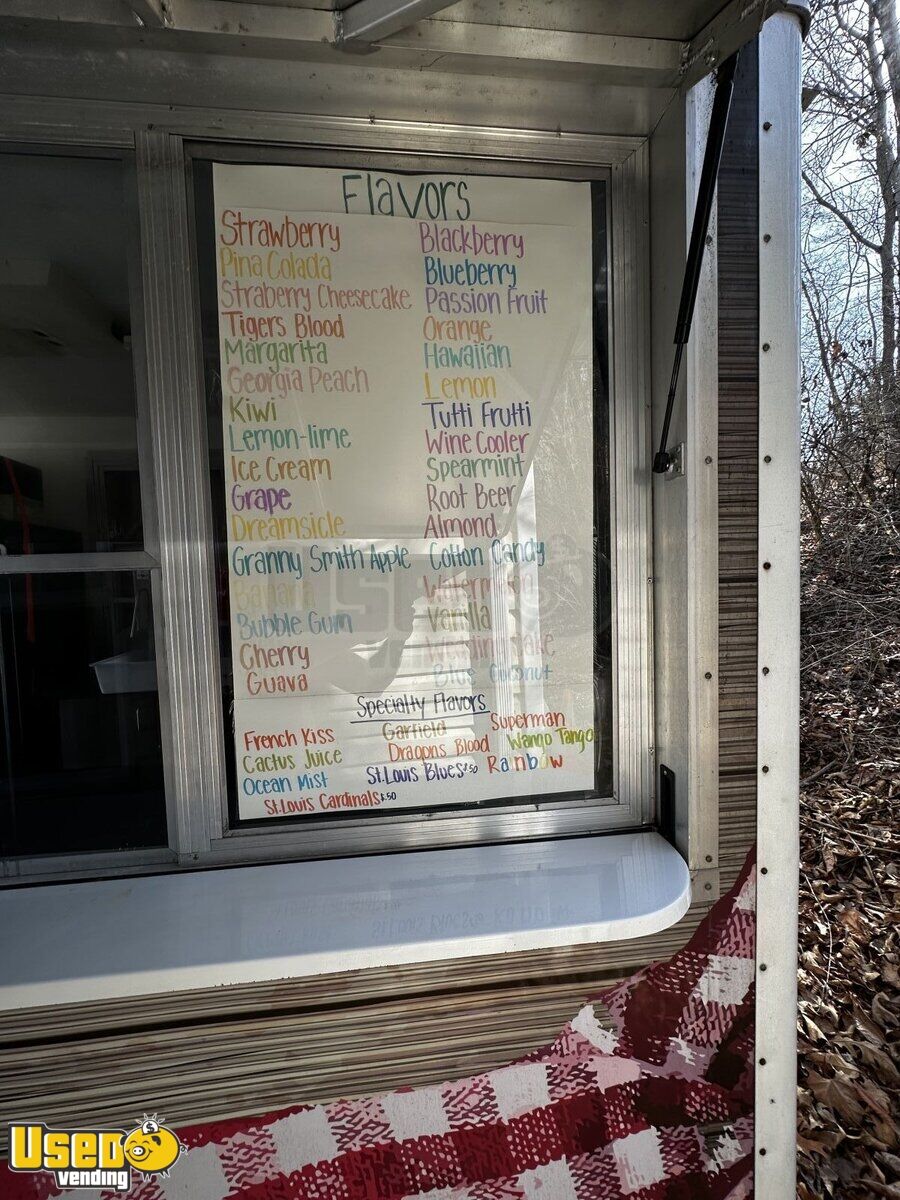 Flavors
Strawberry
Pina Colada
Straberry Cheesecake
Tigers Blood
Margarita
Georgia Peach
Kiwi
Lemon-lime
Ice Cream
Grape
Dreamsicle
Granny Smith Apple
Banana
Bubble Gum
Cherry
Guava
Blackberry
Blueberry
Passion Fruit
Orange
Hawaiian
Lemon
Tutti Frutti
Wine Cooler
Spearmint
Root Beer
Almond
Cotton Candy
Watermelon
Vanilla
Wedding Cake
Blue Coconut
Specialty Flavors
French Kiss
Cactus Juice
Ocean Mist
St.Louis Cardinals $.50
Garfield
Dragons Blood
St.Louis Blues $.50
Superman
Wango Tango
Rainbow
Used
vending